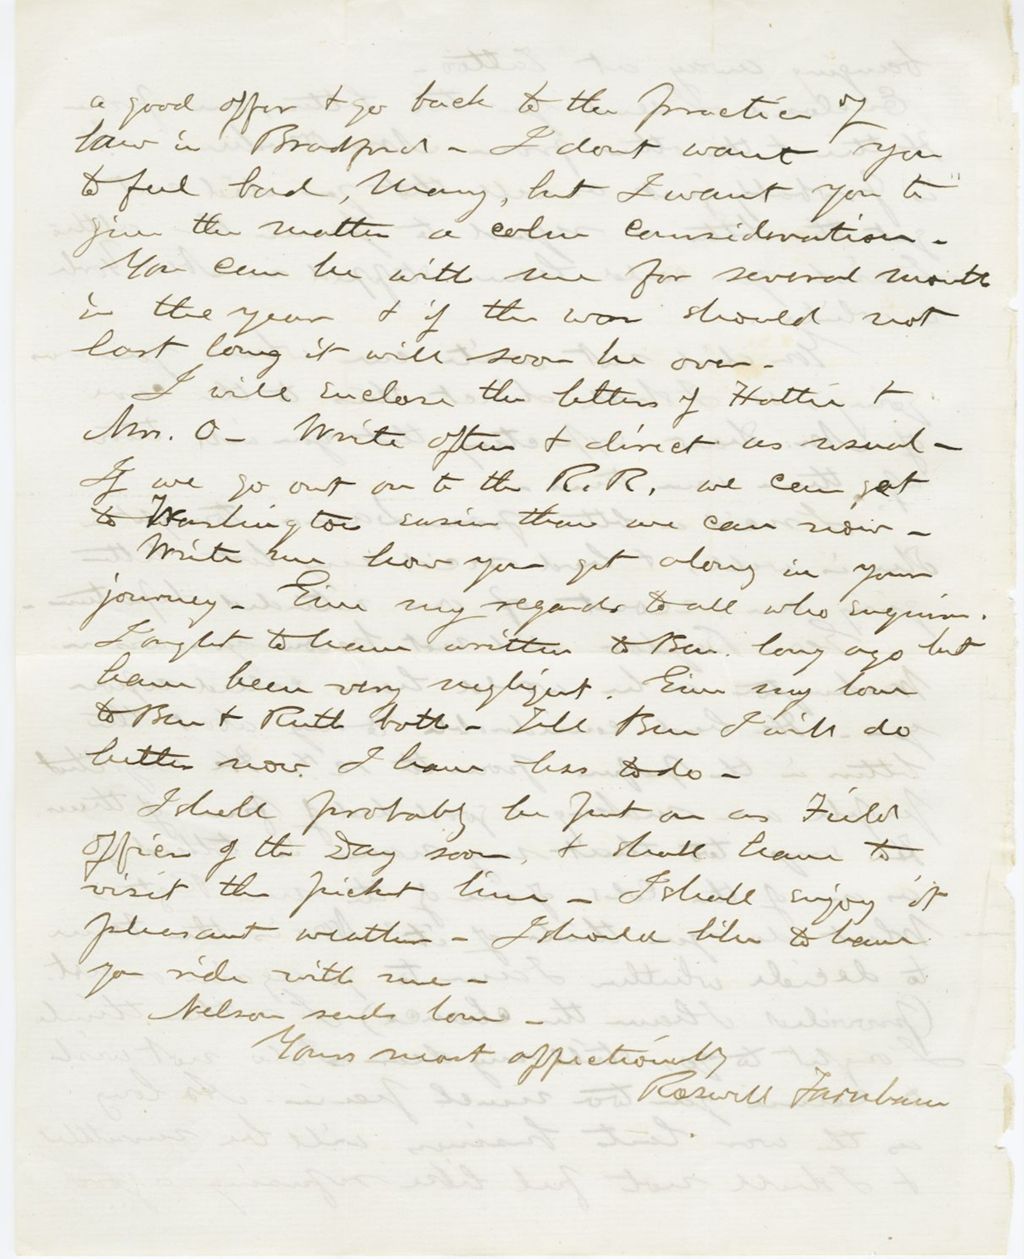 a good offer & go back to the practice of
law in Bradford – I dont want you
to feel bad, Mary, but I want you to
give the matter a calm consideration –
You can be with me for several months
in the year & if the war should not
last long it will soon be over –
I will enclose the letters of Hattie &
Mrs. O – Write often & direct as usual –
If we go out on to the R.R. we can get
to Washington easier than we can now –
Write me how you get along in your
journey – Give my regards to all who enquire.
I ought to have written to Ben. long ago but
have been very negligent. Give my love
to Ben & Ruth both – Tell Ben I will do
better now. I have less to do –
I shall probably be put on as Field
officer of the Day soon, & shall have to
visit the picket line – I shall enjoy it
pleasant weather – I should like to have
you ride with me –
Nelson sends love –
Yours most affectionately
Roswell Farnham